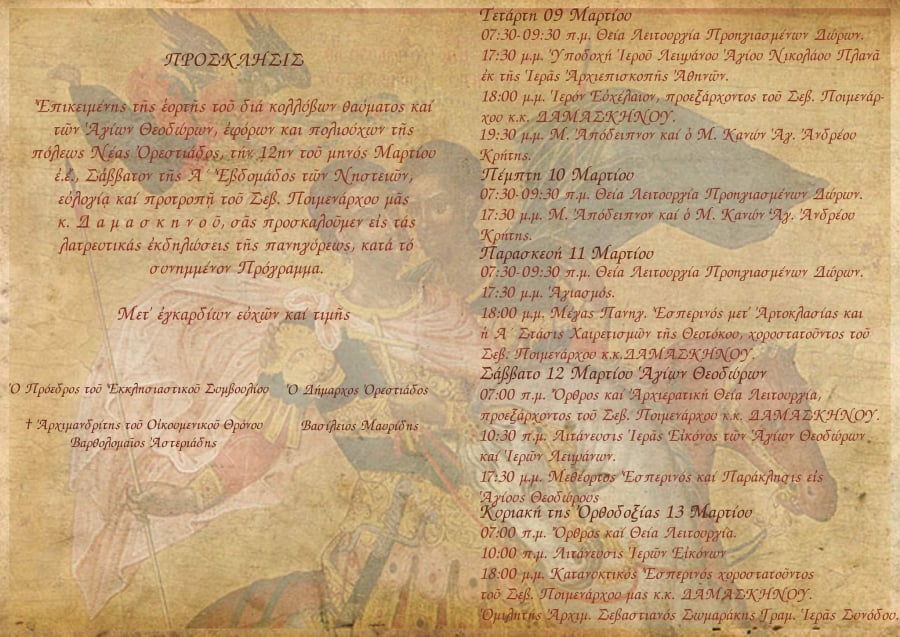 ΠΡΟΣΚΛΗΣΙΣ
Ἐπικειμένης τῆς ἑορτῆς τοῦ διά κολλύβων θαύματος καί
τῶν Ἁγίων Θεοδώρων, ἐφόρων και πολιούχων τῆς
πόλεως Νέας Ὀρεστιάδος, τήν 12ην τοῦ μηνός Μαρτίου
ἐ.ἔ., Σάββατον τῆς Α΄ Ἑβδομάδος τῶν Νηστειῶν,
εὐλογίᾳ καί προτροπῇ τοῦ Σεβ. Ποιμενάρχου μᾶς
κ. Δ α μ α σ κ η ν ο ῦ, σᾶς προσκαλοῦμεν εἰς τάς
λατρευτικάς ἐκδηλώσεις τῆς πανηγύρεως, κατά τό
συνημμένον Πρόγραμμα.
Μετ' ἐγκαρδίων εὐχῶν καί τιμῆς
Ὁ Πρόεδρος τοῦ Ἐκκλησιαστικοῦ Συμβουλίου
Ὁ Δήμαρχος Ὀρεστιάδος
† Ἀρχιμανδρίτης τοῦ Οἰκουμενικοῦ Θρόνου
Βαρθολομαῖος Ἀστεριάδης
Βασίλειος Μαυρίδης
Τετάρτη 09 Μαρτίου
07:30-09:30 π.μ. Θεία Λειτουργία Προηγιασμένων Δώρων.
17:30 μ.μ. Ὑποδοχή Ἱεροῦ Λειψάνου Ἁγίου Νικολάου Πλανᾶ
ἐκ τῆς Ἱερᾶς Ἀρχιεπισκοπῆς Ἀθηνῶν.
18:00 μ.μ. Ἱερόν Εὐχέλαιον, προεξάρχοντος τοῦ Σεβ. Ποιμενάρ-
χου κ.κ. ΔΑΜΑΣΚΗΝΟΥ.
19:30 μ.μ. Μ. Ἀπόδειπνον καί ὁ Μ. Κανών Ἁγ. Ἀνδρέου
Κρήτης.
Πέμπτη 10 Μαρτίου
07:30-09:30 π.μ. Θεία Λειτουργία Προηγιασμένων Δώρων.
17:30 μ.μ. Μ. Ἀπόδειπνον καί ὁ Μ. Κανών Ἁγ. Ἀνδρέου
Κρήτης.
Παρασκευή 11 Μαρτίου
07:30-09:30 π.μ. Θεία Λειτουργία Προηγιασμένων Δώρων.
17:30 μ.μ. Ἁγιασμός.
18:00 μ.μ. Μέγας Πανηγ. Ἑσπερινός μετ' Ἀρτοκλασίας και
ἡ Α΄ Στάσις Χαιρετισμῶν τῆς Θεοτόκου, χοροστατοῦντος τοῦ
Σεβ. Ποιμενάρχου κ.κ.ΔΑΜΑΣΚΗΝΟΥ.
Σάββατο 12 Μαρτίου Ἁγίων Θεοδώρων
07:00 π.μ. Ὄρθρος και Ἀρχιερατική Θεία Λειτουργία,
προεξάρχοντος τοῦ Σεβ. Ποιμενάρχου κ.κ. ΔΑΜΑΣΚΗΝΟΥ.
10:30 π.μ. Λιτάνευσις Ἱερᾶς Εἰκόνος τῶν Ἁγίων Θεοδώρων
καί Ἱερῶν Λειψάνων.
17:30 μ.μ. Μεθέορτος Ἑσπερινός καί Παράκλησις εἰς
Ἁγίους Θεοδώρους
Κυριακή της Ὀρθοδοξίας 13 Μαρτίου
07:00 π.μ. Ὄρθρος καί Θεία Λειτουργία.
10:00 π.μ. Λιτάνευσις Ἱερῶν Εἰκόνων
18:00 μ.μ. Κατανυκτικός Ἑσπερινός χοροστατοῦντος
τοῦ Σεβ. Ποιμενάρχου μας κ.κ. ΔΑΜΑΣΚΗΝΟΥ.
Ὁμιλητής Ἀρχιμ. Σεβαστιανός Σωμαράκης Γραμ. Ἱερᾶς Συνόδου.